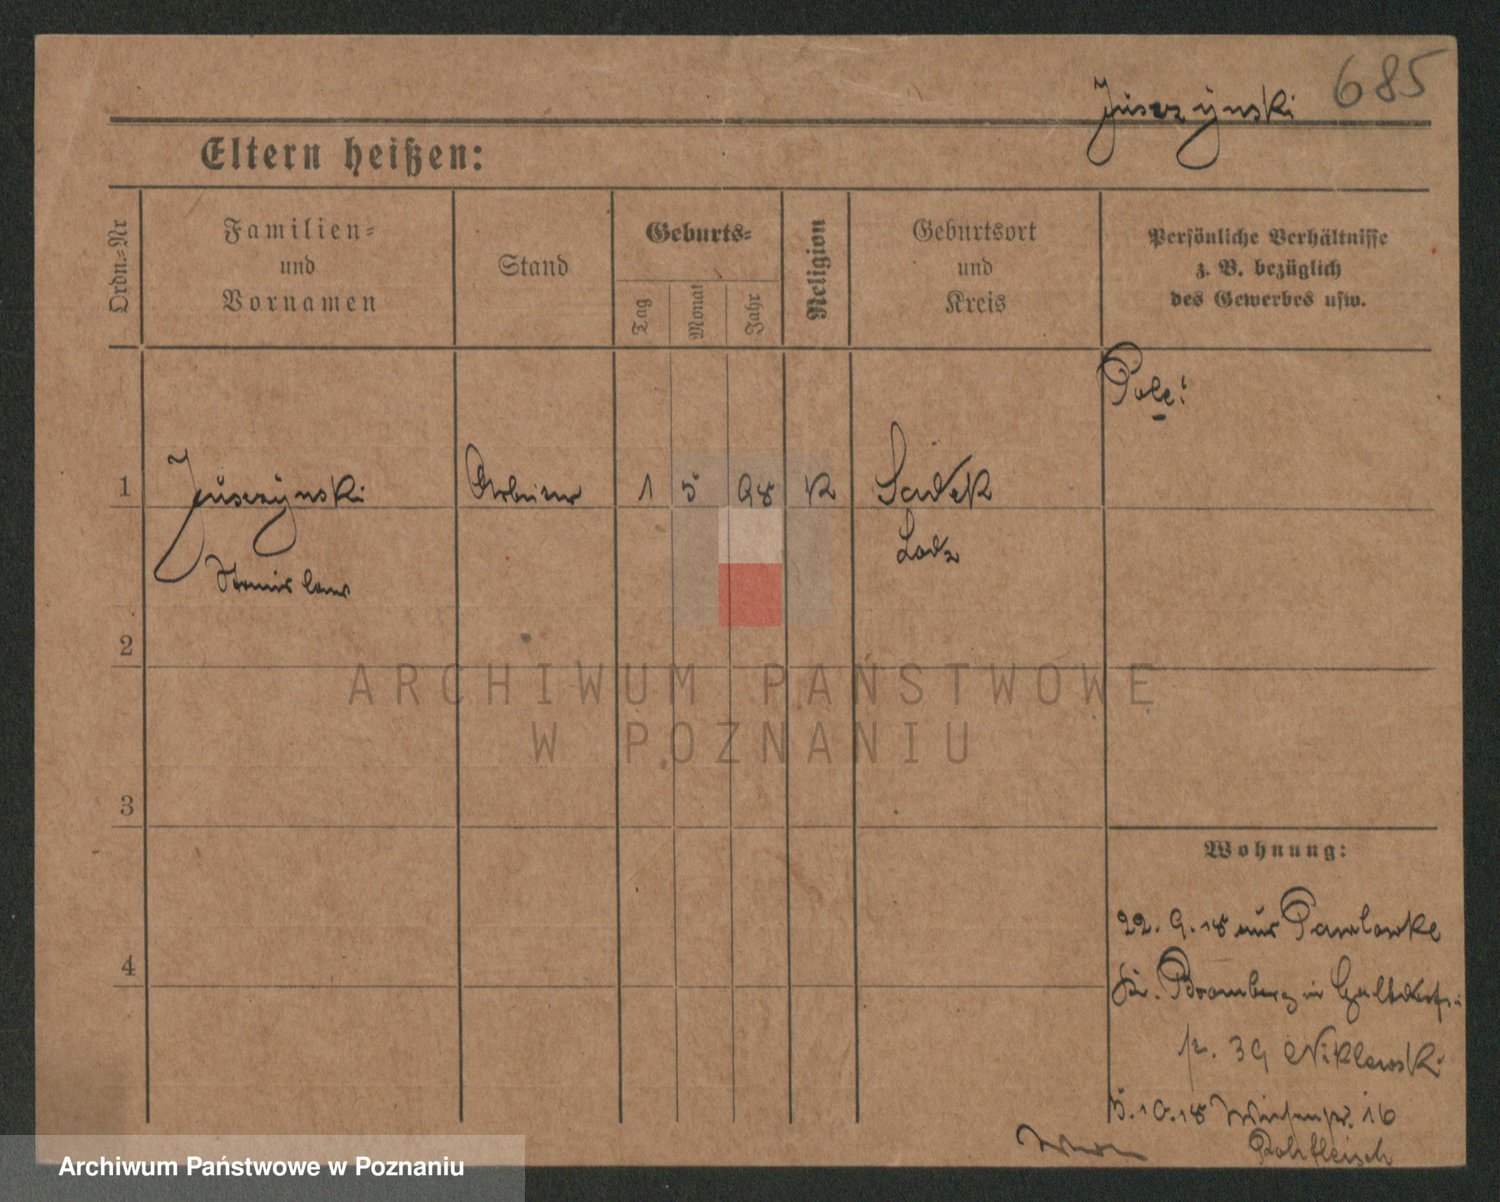 685
Juszzynski
Eltern heißen:
Ordn.-Nr
Familien-
und
Vornamen
Stand
Geburts-
Tag
Monat
Jahr
Religion
Geburtsort
und
Kreis
Persönliche Verhältnisse
z. B. bezüglich
des Gewerbes usw.
Pole!
1
Juszzynski
Arbeiter
1
5
98
K
Sadek
Lodz
Stanislaus
2
ARCHIWUM PAŃSTWOWE
W POZNANIU
3
Wohnung:
22. 9. 18 aus Pawlowke
4
Kr. Bromberg in
39 Niklewski
5. 10. 18 16
Rohrfleisch
Archiwum Państwowe w Poznaniu